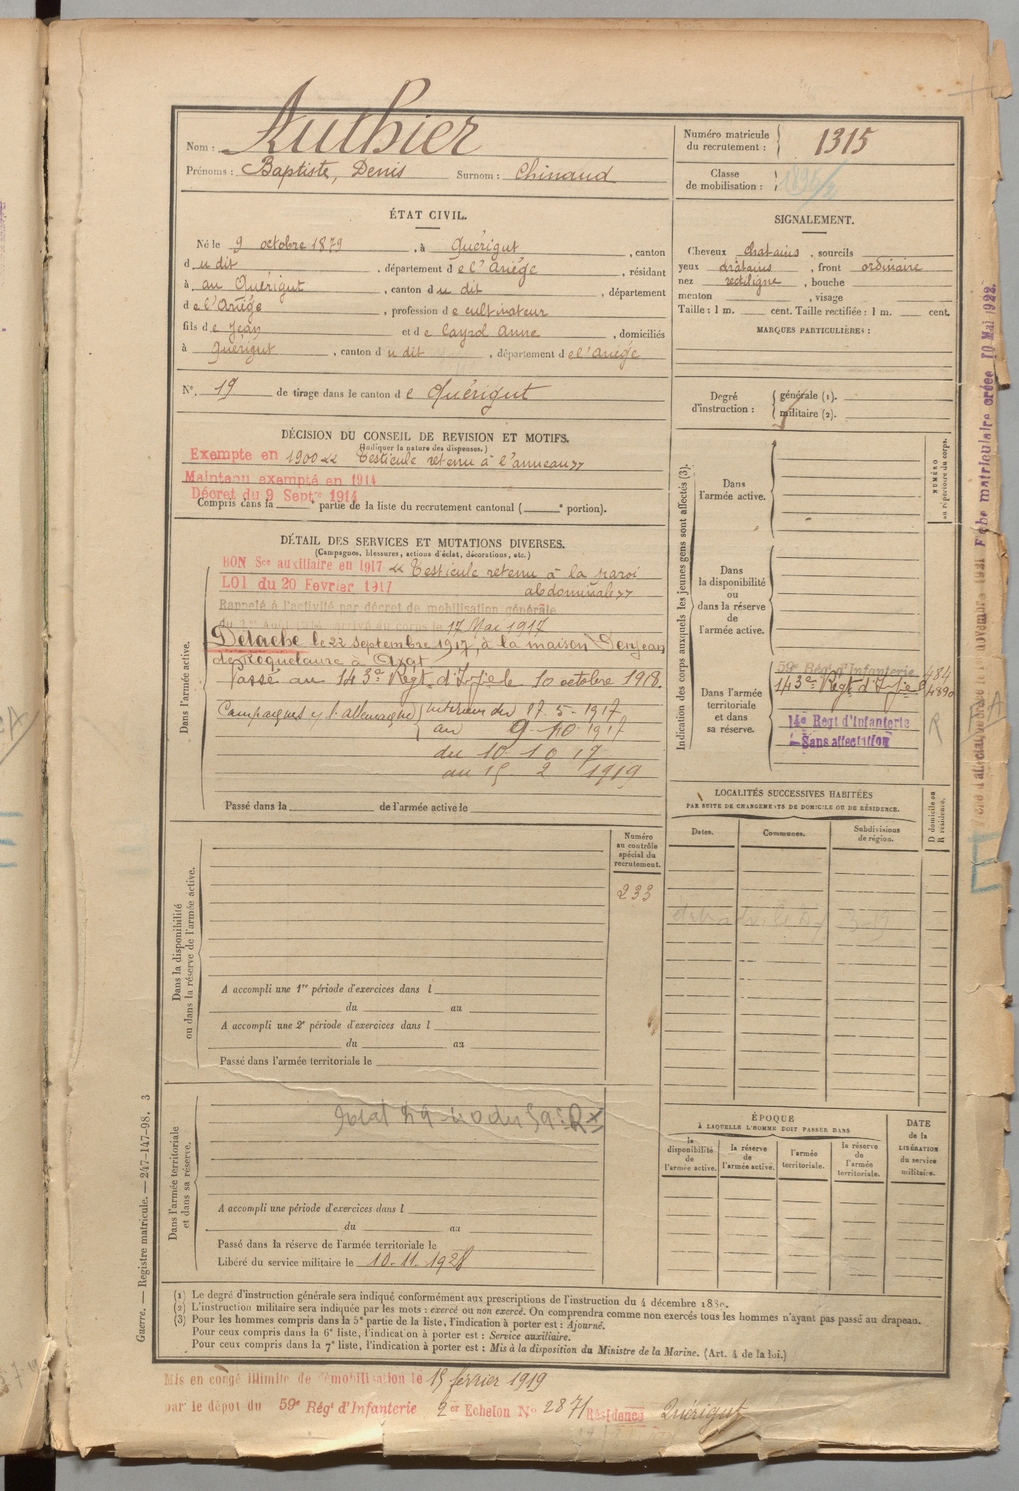 Authier
Nom :
Prénoms : Baptiste, Denis Surnom : Chinaud
Numéro matricule du recrutement : 1315
Classe de mobilisation :
ÉTAT CIVIL.
Né le 9 octobre 1879, à Quérigut, canton
du dit, département de l'Ariège, résidant
à au Quérigut, canton du dit, département
de l'Ariège, profession de cultivateur
fils de Jean et de Cayrol Anne, domiciliés
à Quérigut, canton du dit, département de l'Ariège
N° 19 de tirage dans le canton de Quérigut
SIGNALEMENT.
Cheveux chatains, sourcils
yeux chatains, front ordinaire
nez rectiligne, bouche
menton, visage
Taille : 1 m. cent. Taille rectifiée : 1 m. cent.
MARQUES PARTICULIÈRES :
Degré d'instruction : générale (1).
militaire (2).
DÉCISION DU CONSEIL DE REVISION ET MOTIFS.
(Indiquer la nature des dispenses.)
Exempté en 1900 « Testicule retenu à l'anneau »
Maintenu exempté en 1914
Décret du 9 Septre 1914
Compris dans la e partie de la liste du recrutement cantonal ( e portion).
DÉTAIL DES SERVICES ET MUTATIONS DIVERSES.
(Campagnes, blessures, actions d'éclat, décorations, etc.)
BON Sce auxiliaire en 1917 « Testicule retenu à la paroi
LOI du 20 Février 1917 abdominale »
Rappelé à l'activité par décret de mobilisation générale
du 1er Août 1914 arrivé au corps le 17 Mai 1917
Détaché le 22 septembre 1917, à la maison Denjean
de Roquelaure à Axat
Passé au 143e Régt d'Infie le 10 octobre 1918.
Campagnes c/ l'allemagne intérieur du 17-5-1917
au 9-10-1917
du 10-10-17
au 15 2 1919
Passé dans la de l'armée active le
Dans l'armée active.
Indication des corps auxquels les jeunes gens sont affectés (3).
NUMÉRO au répertoire du corps.
Dans l'armée active.
Dans la disponibilité ou dans la réserve de l'armée active.
Dans l'armée territoriale et dans sa réserve.
59e Régt d'Infanterie 484
143e Régt d'Infie 4890
14e Regt d'Infanterie
Sans affectation
R
LOCALITÉS SUCCESSIVES HABITÉES
PAR SUITE DE CHANGEMENTS DE DOMICILE OU DE RÉSIDENCE.
Dates. Communes. Subdivisions de région.
D domicile ou R résidence.
Numéro au contrôle spécial du recrutement.
233
Dans la disponibilité ou dans la réserve de l'armée active.
A accompli une 1re période d'exercices dans l
du au
A accompli une 2e période d'exercices dans l
du au
Passé dans l'armée territoriale le
ÉPOQUE
À LAQUELLE L'HOMME DOIT PASSER DANS
la disponibilité de l'armée active.
la réserve de l'armée active.
l'armée territoriale.
la réserve de l'armée territoriale.
DATE de la LIBÉRATION du service militaire.
Dans l'armée territoriale et dans sa réserve.
A accompli une période d'exercices dans l
du au
Passé dans la réserve de l'armée territoriale le
Libéré du service militaire le 10-11-1928
(1) Le degré d'instruction générale sera indiqué conformément aux prescriptions de l'instruction du 4 décembre 1889.
(2) L'instruction militaire sera indiquée par les mots : exercé ou non exercé. On comprendra comme non exercés tous les hommes n'ayant pas passé au drapeau.
(3) Pour les hommes compris dans la 5e partie de la liste, l'indication à porter est : Ajourné.
Pour ceux compris dans la 6e liste, l'indication à porter est : Service auxiliaire.
Pour ceux compris dans la 7e liste, l'indication à porter est : Mis à la disposition du Ministre de la Marine. (Art. 4 de la loi.)
Guerre. — Registre matricule. — 247-147-98. 3
Mis en congé illimité de démobilisation le 15 février 1919
par le dépot du 59e Régt d'Infanterie 2er Echelon No 2871 Résidence Quérigut
Fiche matriculaire créée 10 Mai 1922.